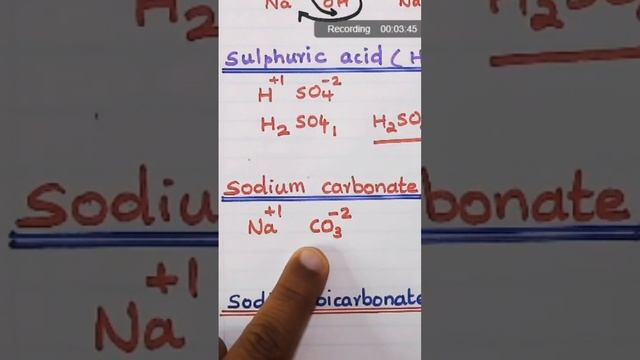 Na OH Na
Recording 00:03:45
Sulphuric acid ( H
H+1 SO4-2
H2 SO4 1 H2SO
Sodium carbonate
Na+1 CO3-2
bicarbonate